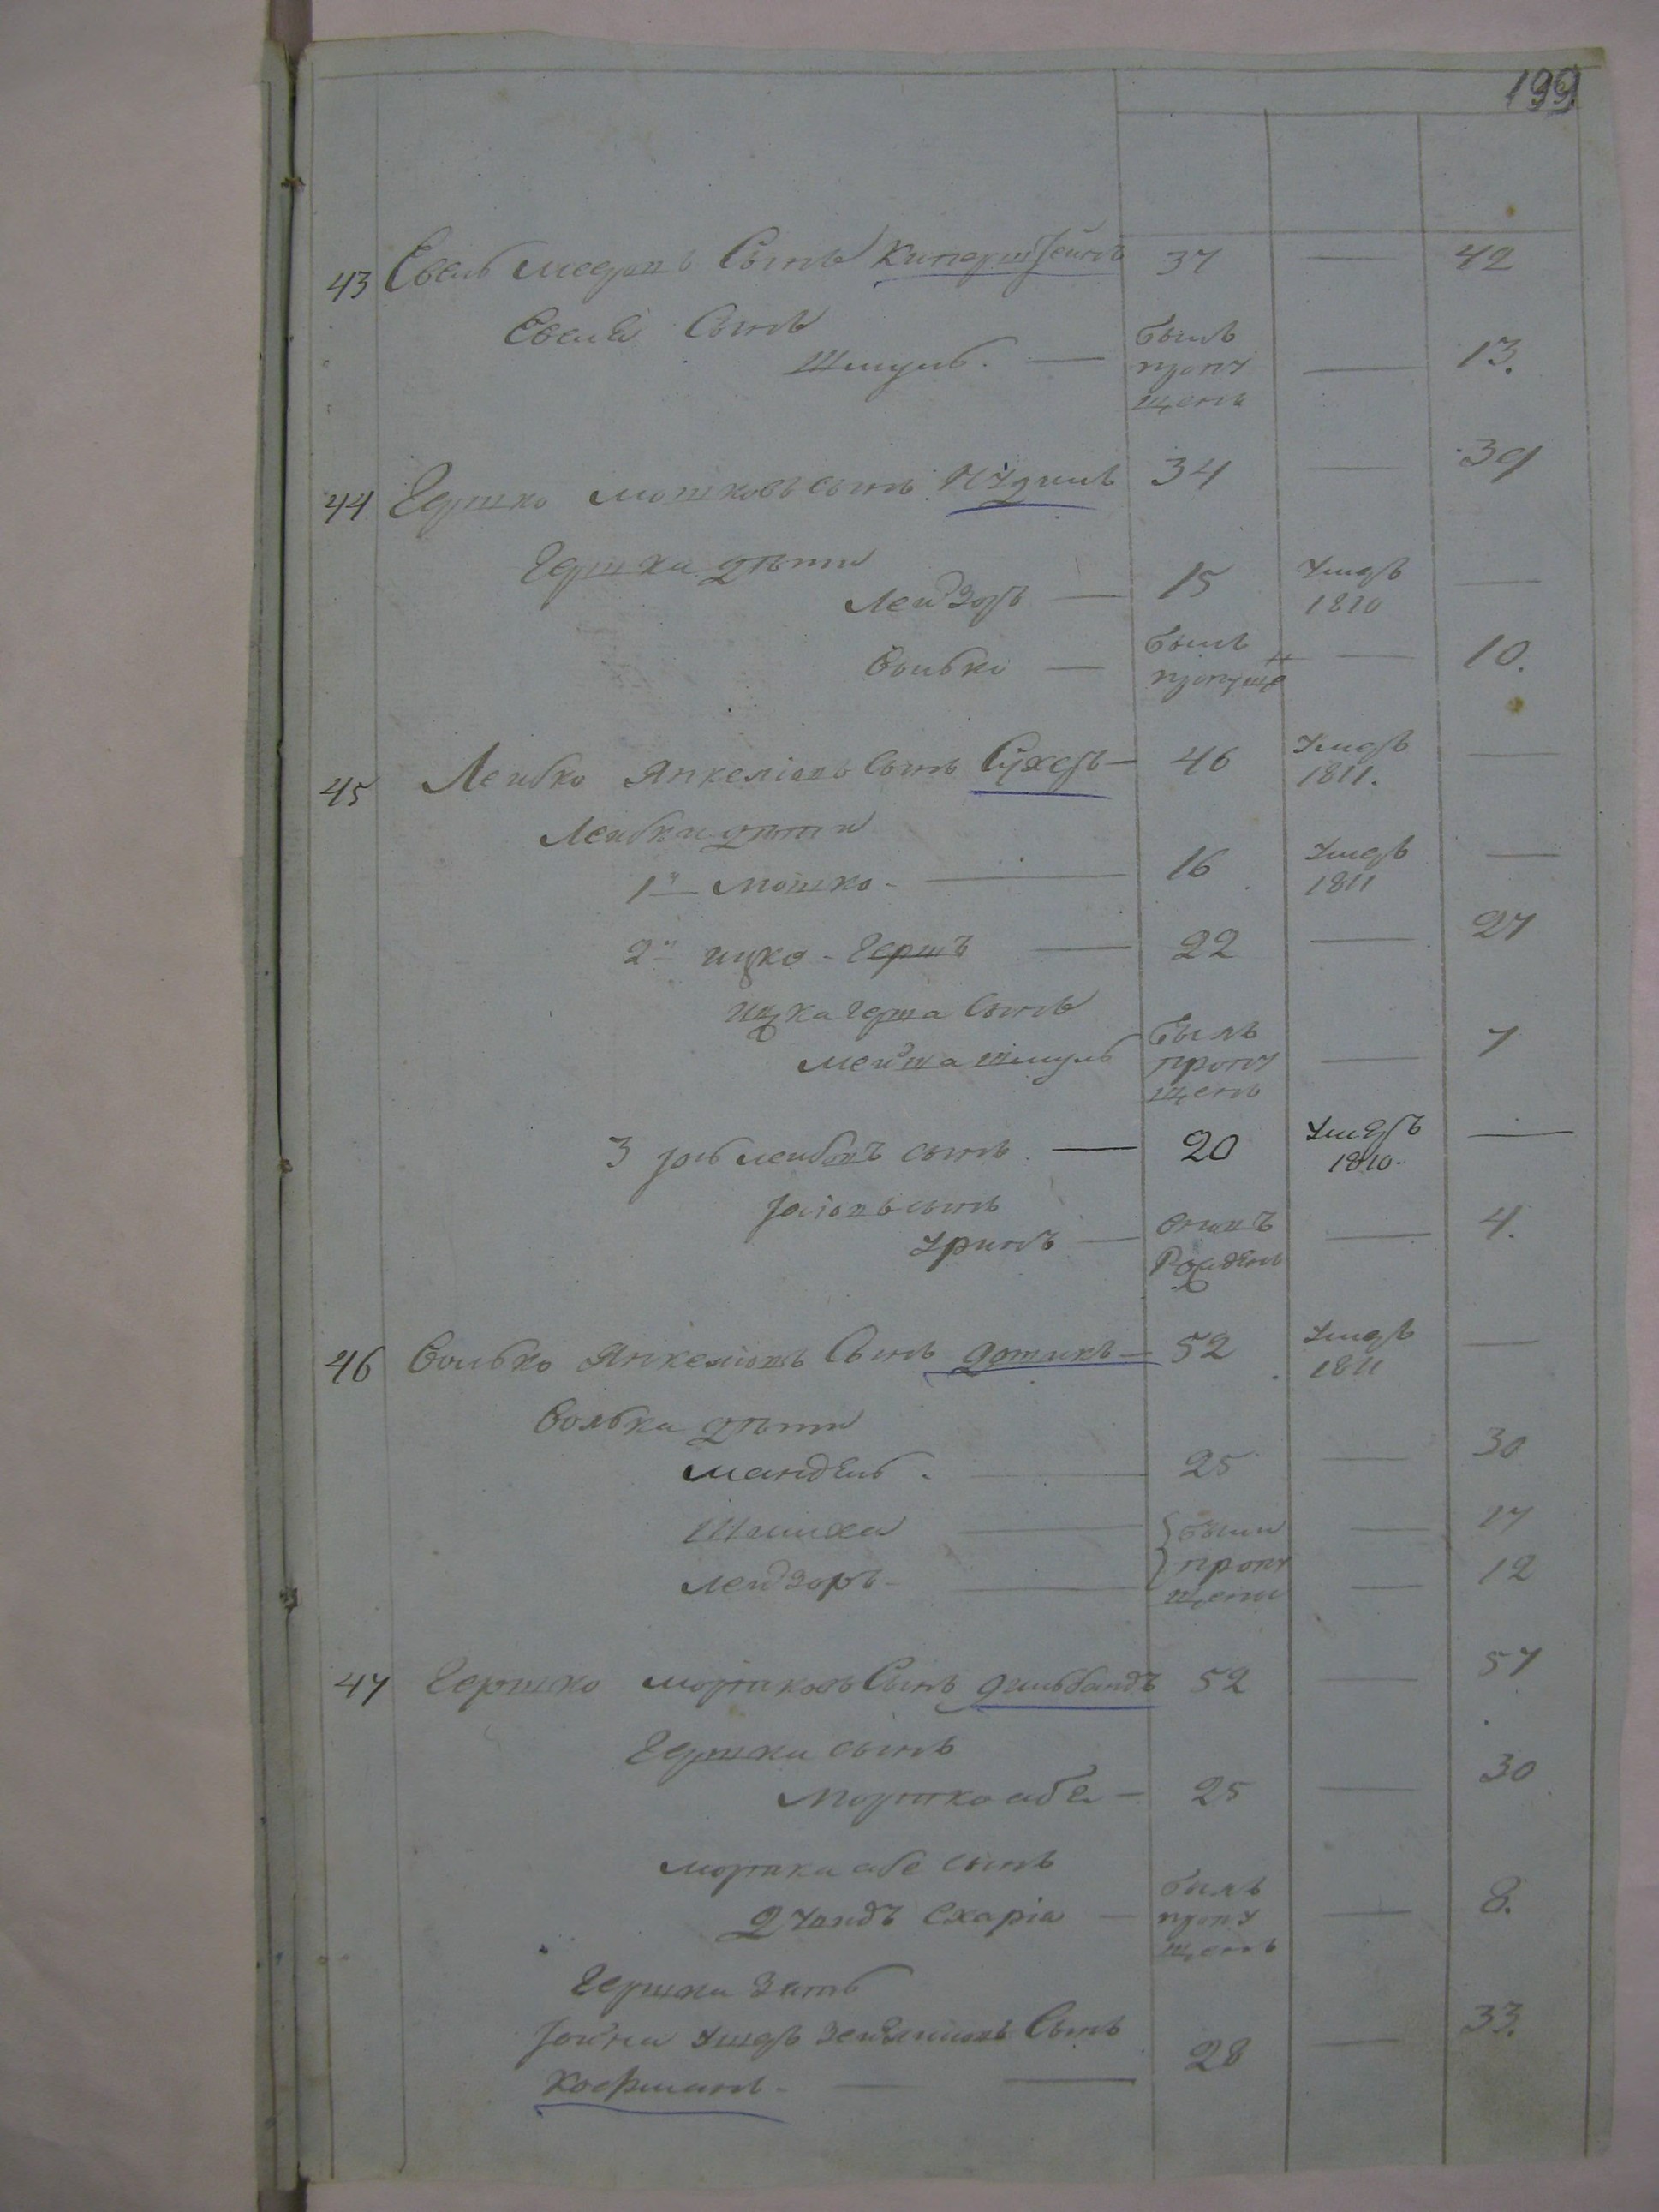 199
43 Евель Мееров Сынъ Куперштейнъ 37 — 42
Евеля Сынъ
Шмуль. — былъ пропущенъ — 13.
44 Гершко Мошковъ сынъ Нудель 34 — 39
Гершка дѣти
Лейзоръ — 15 Умеръ 1810 —
Волько — былъ пропущен — 10.
45 Лейбко Янкеліовъ Сынъ Сухеръ — 46 Умеръ 1811. —
Лейбки дѣти
1й Мошко — 16 Умеръ 1811 —
2й Ицко-Гершъ — 22 — 27
Ицка Герша Сынъ
Мейша Шмуль былъ пропущенъ — 7
3 Іоль Лейбовъ сынъ — 20 Умеръ 1810. —
Іоліовъ сынъ
Уринъ — вновь Рожденъ — 4.
46 Волько Янкеліовъ Сынъ — 52 Умеръ 1811 —
Волька дѣти
Мандель. — 25 — 30
Шлиха — были пропущены — 17
Лейзоръ — — 12
47 Гершко Моршковъ Сынъ Гильбандъ 52 — 57
Гершка сынъ
Моршко Абе — 25 — 30
Моршка Абе сынъ
Схаріа — былъ пропущенъ — 8.
Гершка Зять
Іойна Ушеръ Сынъ
Кофманъ — 28 — 33.